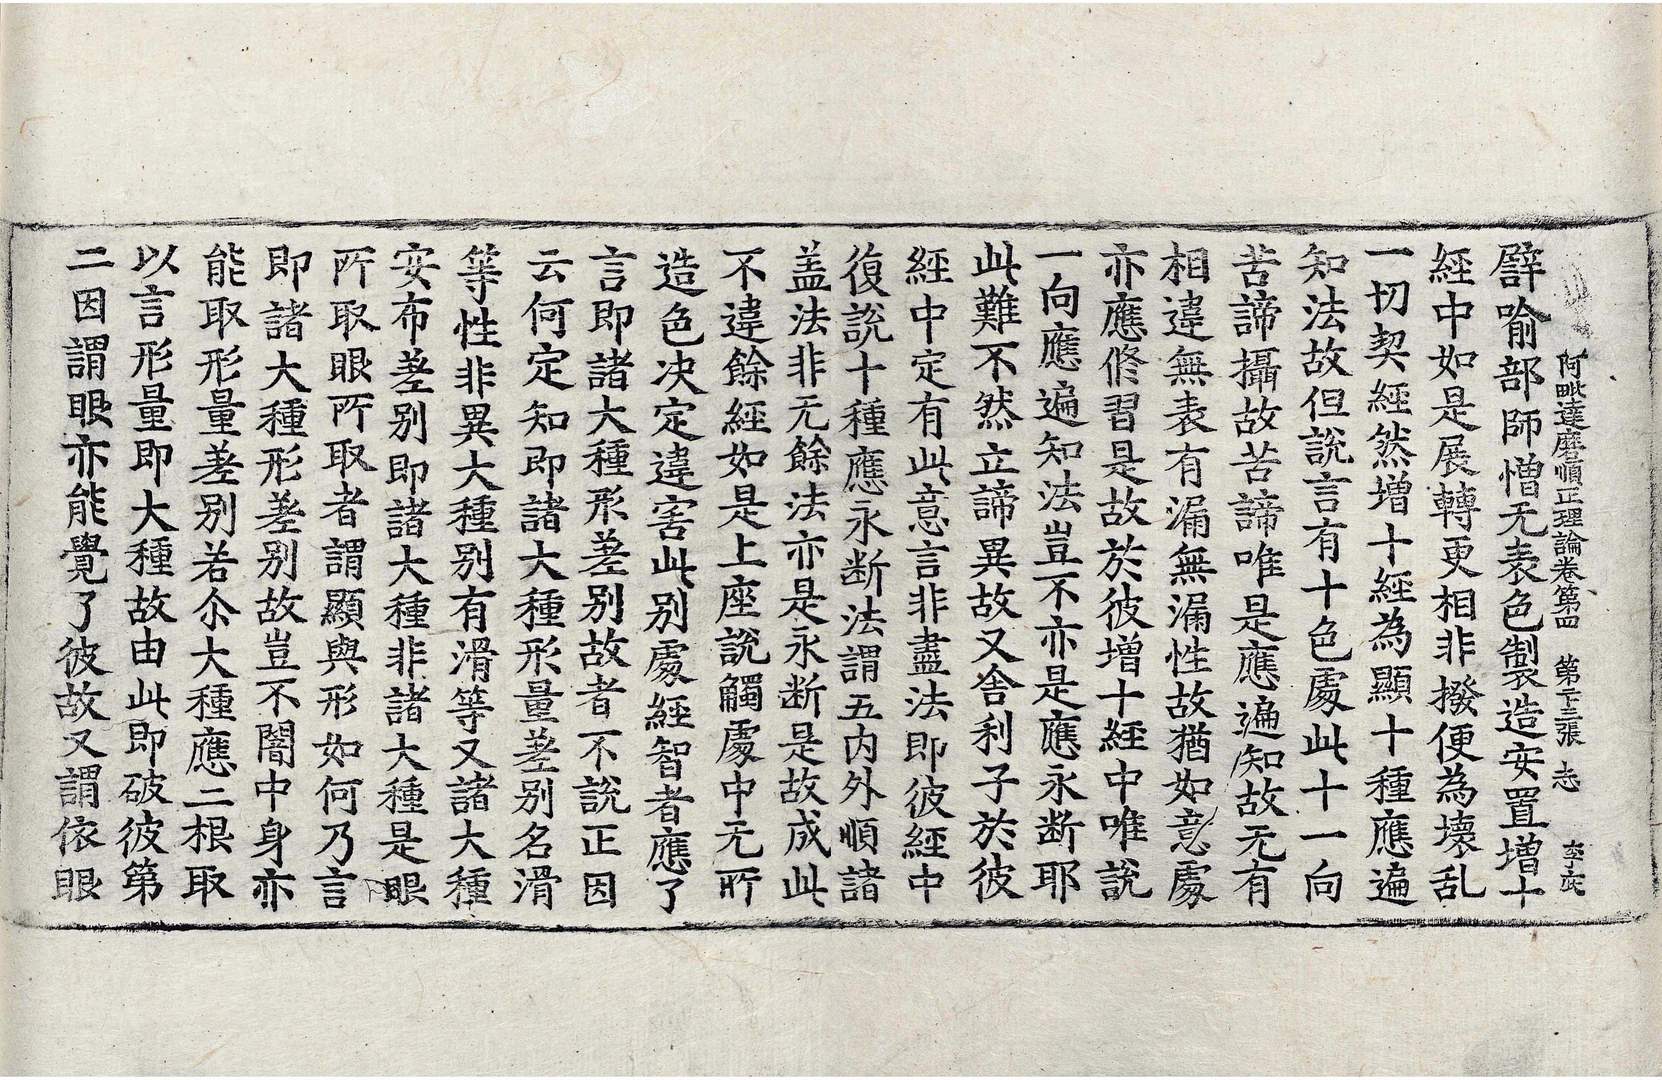 阿毗達磨順正理論卷第四　第二十三張　志　李文
譬喻部師憎无表色製造安置增十
經中如是展轉更相非撥便為壞乱
一切契經然增十經為顯十種應遍
知法故但說言有十色處此十一向
苦諦攝故苦諦唯是應遍知故无有
相違無表有漏無漏性故猶如意處
亦應修習是故於彼增十經中唯說
一向應遍知法豈不亦是應永斷耶
此難不然立諦異故又舍利子於彼
經中定有此意言非盡法即彼經中
復說十種應永断法謂五內外順諸
盖法非无餘法亦是永断是故成此
不違餘經如是上座說觸處中无所
造色决定違害此別處經智者應了
言即諸大種形差別故者不說正因
云何定知即諸大種形量差別名滑
等性非異大種別有滑等又諸大種
安布差別即諸大種非諸大種是眼
所取眼所取者謂顯與形如何乃言
即諸大種形差別故豈不闇中身亦
能取形量差別若尒大種應二根取
以言形量即大種故由此即破彼第
二因謂眼亦能覺了彼故又謂依眼